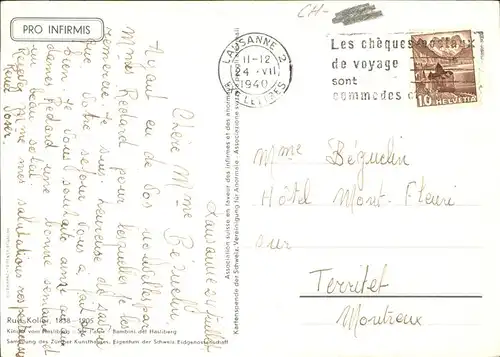 PRO INFIRMIS
CH-
LAUSANNE 2
11-12
4.VII
1940
LETTRES
Les chèques postaux
de voyage
sont
commodes
10 HELVETIA
Lausanne 4 juillet
Chère Mme Béguelin
Ayant eu de vos nouvelles par
Mme Redard pour lesquelles je la
remercie je suis heureuse de savoir
que votre séjour vous a fait du
bien. Je vous souhaite ainsi qu'à
dames Redard une bonne semaine et
un beau soleil.
Recevez Mme mes salutations respectueuses
Mme Béguelin
Hôtel Mont-Fleuri
sur
Territet
Montreux
Association suisse en faveur des infirmes et des anormaux
Kartenspende der Schweiz. Vereinigung für Anormale
Rud. Koller, 1828-1905
Kinder vom Hasliberg
Bambini del Hasliberg
Sammlung des Zürcher Kunsthauses. Eigentum der Schweiz. Eidgenossenschaft